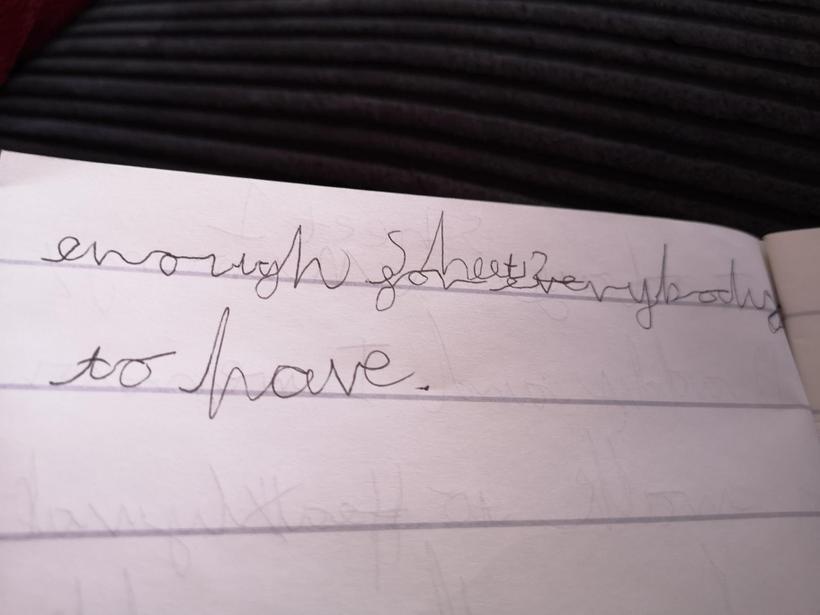 enough sheets everybody
to have.